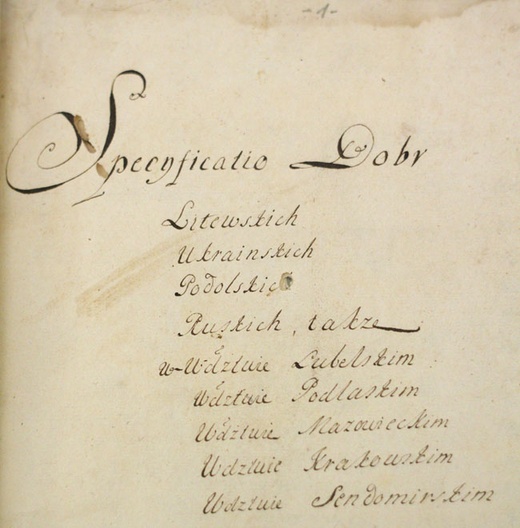 -1-
Specyficatio Dobr
Litewskich
Ukrainskich
Podolskich
Ruskich, takze
w Wdztwie Lubelskim
Wdztwie Podlaskim
Wdztwie Mazowieckim
Wdztwie Krakowskim
Wdztwie Sendomirskim